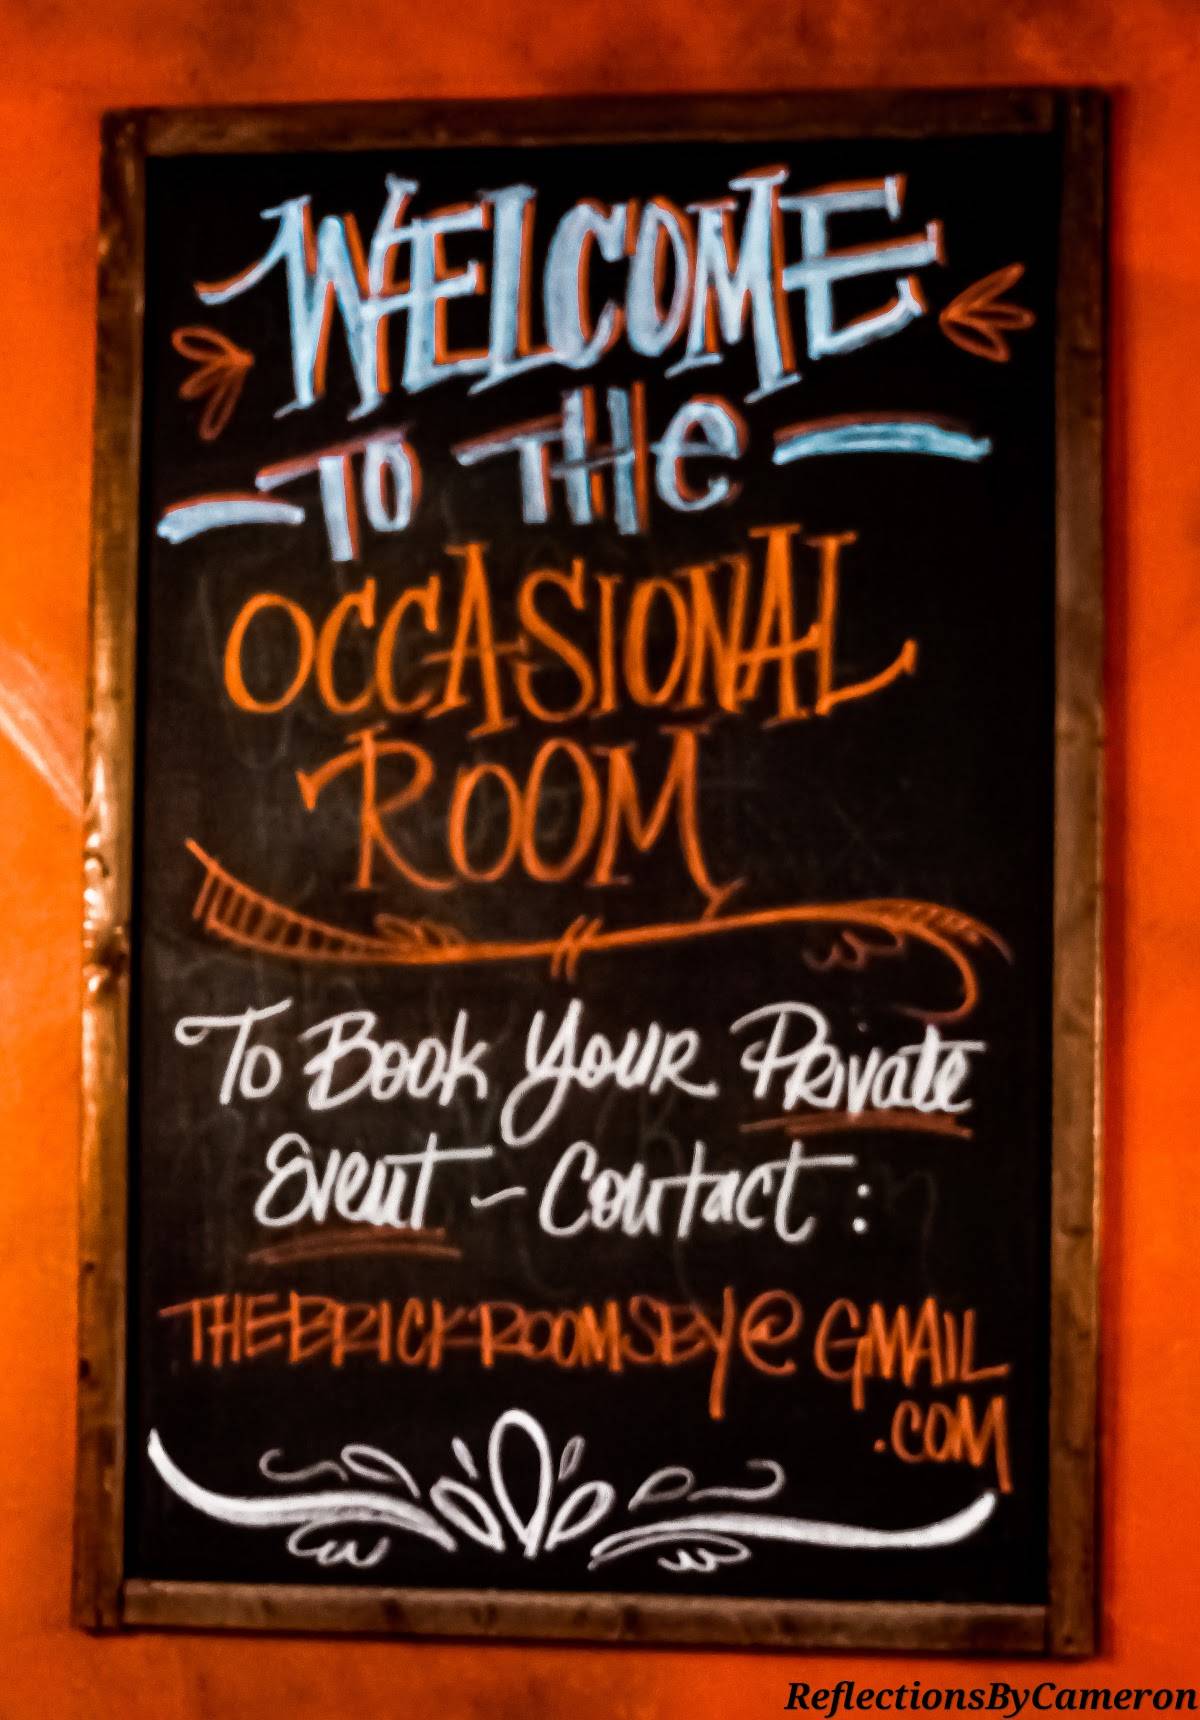 WELCOME
TO THE
OCCASIONAL
ROOM
To Book Your Private
Event - Contact:
THEBRICKROOMSBY@GMAIL
.COM
ReflectionsByCameron